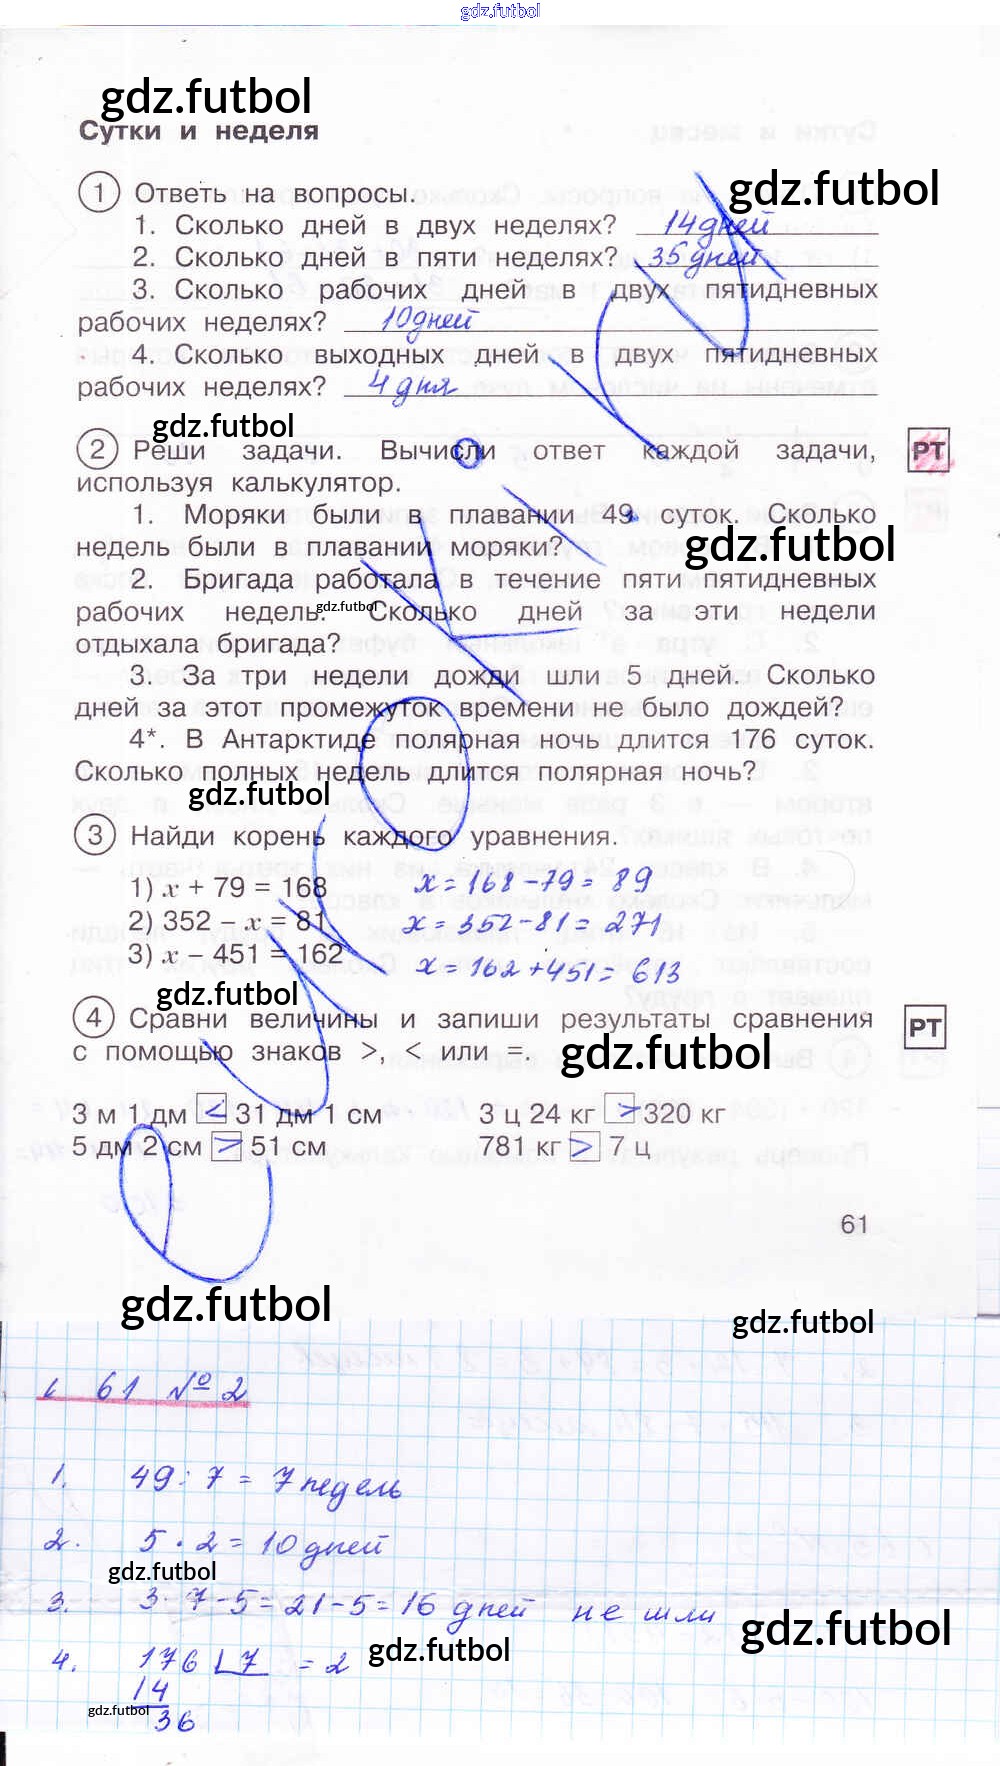 gdz.futbol
gdz.futbol
Сутки и неделя
gdz.futbol
1 Ответь на вопросы.
1. Сколько дней в двух неделях? 14 дней
2. Сколько дней в пяти неделях? 35 дней
3. Сколько рабочих дней в двух пятидневных
рабочих неделях? 10 дней
4. Сколько выходных дней в двух пятидневных
рабочих неделях? 4 дня
gdz.futbol
2 Реши задачи. Вычисли ответ каждой задачи, РТ
используя калькулятор.
1. Моряки были в плавании 49 суток. Сколько
недель были в плавании моряки?
gdz.futbol
2. Бригада работала в течение пяти пятидневных
рабочих недель. Сколько дней за эти недели
gdz.futbol
отдыхала бригада?
3. За три недели дожди шли 5 дней. Сколько
дней за этот промежуток времени не было дождей?
4*. В Антарктиде полярная ночь длится 176 суток.
Сколько полных недель длится полярная ночь?
gdz.futbol
3 Найди корень каждого уравнения.
1) x + 79 = 168 x = 168 - 79 = 89
2) 352 - x = 81 x = 352 - 81 = 271
3) x - 451 = 162 x = 162 + 451 = 613
gdz.futbol
4 Сравни величины и запиши результаты сравнения РТ
с помощью знаков >, < или =.
gdz.futbol
3 м 1 дм < 31 дм 1 см 3 ц 24 кг > 320 кг
5 дм 2 см > 51 см 781 кг > 7 ц
61
gdz.futbol
gdz.futbol
с 61 № 2
1. 49 : 7 = 7 недель
2. 5 · 2 = 10 дней
gdz.futbol
3. 3 · 7 - 5 = 21 - 5 = 16 дней не шли
gdz.futbol
4. 176 7 = 2
gdz.futbol
14
gdz.futbol
36